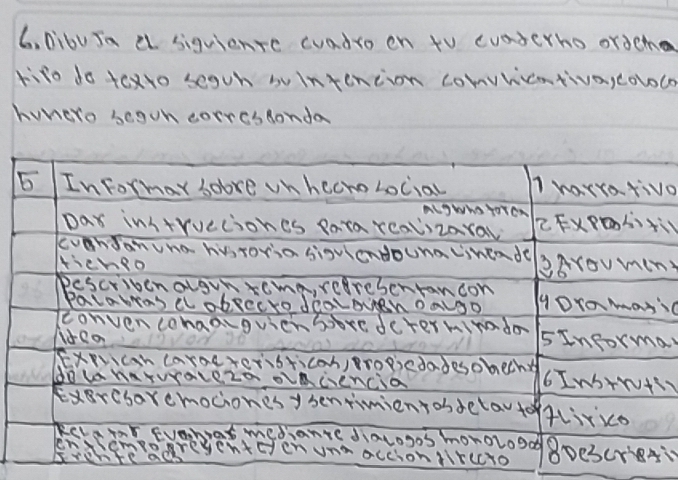 6. Dibuja el siguiente cuadro en tu cuaderno ordena
tipo de texto segun su intencion comunicativa, coloco
numero segun corresponda
5 Informar sobre un hecho social 1 narrativo
Dar instrucciones para realizar al alguna tarea 2 Expositiv
cuendan una historia siguiendo una linea de
tiempo 3 Argumen
Describen algun tema, representan con
Palabras el objecto de alguien o algo 4 Dramatic
convencen a alguien sobre determinada
idea 5 Informa
Explican caracteristicas, propiedades o hechos
de la naturaleza o la ciencia 6 Instruti
Expresar emociones y sentimientos del autor 7 lirico
mediante dialogos monologos
en una accion directo 8 Descripti